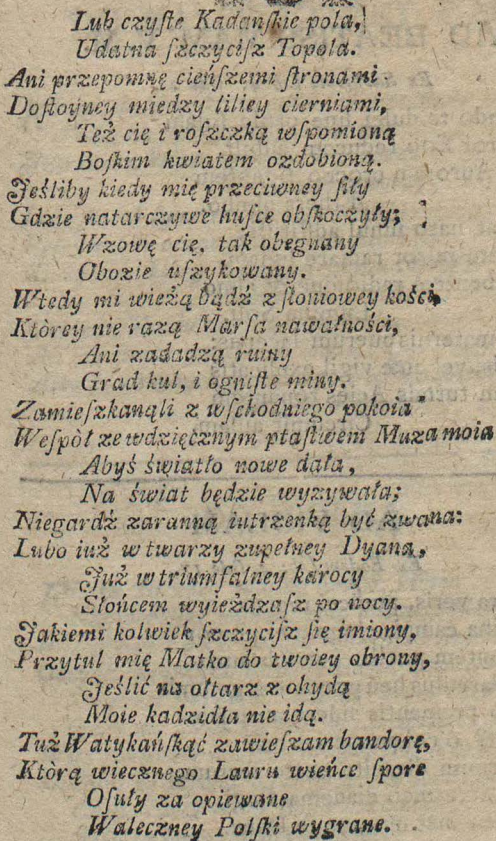 Lub czyſte Kadańſkie pola,
Udatna ſzczyciſz Topola.
Ani przepomnę cieńſzemi ſtronami
Doſtoyney miedzy liliey cierniami,
Też cię i roſzczką wſpomioną
Boſkim kwiatem ozdobioną.
Jeśliby kiedy mię przeciwney ſiły
Gdzie natarczywe hufce obſkoczyły;
Wzowę cię, tak obegnany
Obozie uſzykowany.
Wtedy mi wieżą bądź z ſłoniowey kości,
Którey nie rażą Marſa nawałności,
Ani zadadzą ruiny
Grad kul, i ogniſte miny.
Zamieſzkanąli z wſchodniego pokoia
Weſpół ze wdzięcznym ptaſtwem Muza moia
Abyś światło nowe dała,
Na świat będzie wyzywała;
Niegardź zaranną iutrzenką być zwana:
Lubo iuż w twarzy zupełney Dyana,
Już w triumfalney karocy
Słońcem wyieżdzaſz po nocy.
Jakiemi kolwiek ſzczyciſz ſię imiony,
Przytul mię Matko do twoiey obrony,
Jeślić na ołtarz z ohydą
Moie kadzidła nie idą.
Tuż Watykańſkąć zawieſzam bandorę,
Którą wiecznego Lauru wieńce ſpore
Oſuły za opiewane
Waleczney Polſki wygrane.